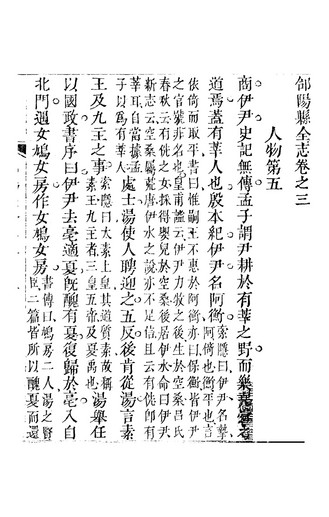 郃陽縣全志卷之三
人物第五
商伊尹史記無傳孟子謂伊尹耕於有莘之野而樂堯舜之
道焉蓋有莘人也殷本紀伊尹名阿衡索隱曰伊尹名摯阿衡官也衡平也言
依倚而取平書曰惟嗣王不惠於阿衡亦曰保衡皆伊尹
之官號非名也皇甫謐云伊尹力牧之後生於空桑呂氏
春秋云有侁之女採得嬰兒於空桑後居伊水命曰伊尹
新志云空桑屬莒唐伊水之說亦不足信且云有侁卽有
莘耳自當據孟子以爲有莘人處士湯使人聘迎之五反後肯從湯言素
王及九主之事索隱曰太素上皇其道質素故稱素王九主者三皇五帝及夏禹也湯舉任
以國政書序曰伊尹去亳適夏旣醜有夏復歸於亳入自
北門遇女鳩女房作女鳩女房書傳曰鳩房二人湯之賢臣二篇皆所以醜夏而還